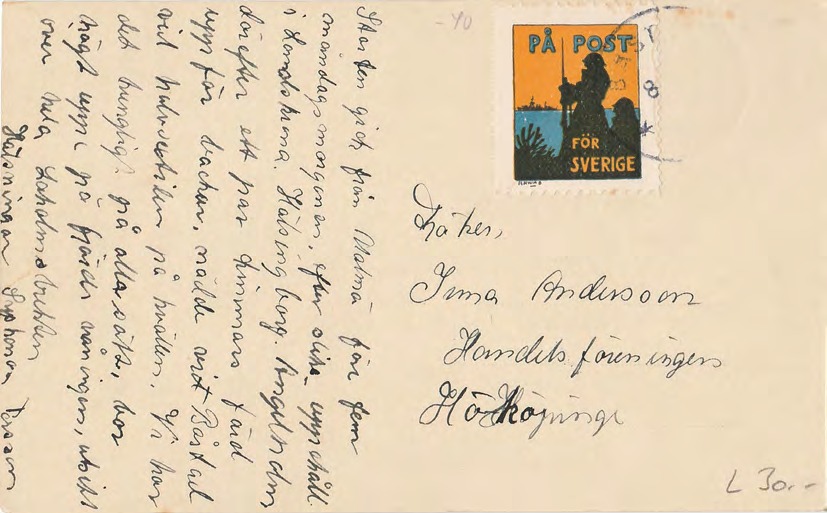 Starten gick från Malmö för fem
måndagsmorgonen, efter olika uppehåll
i Landskrona. Hälsingborg. Ängelholm
därefter ett par timmars färd
uppför backar, nådde vi Båstad
vid halvsextiden på kvällen. Vi har
det trevligt på alla sätt, bor
högt uppe på fjärde våningen, utsikt
över hela Laholmsbukten
Hälsningar Persson
-40
PÅ POST
FÖR
SVERIGE
BÅST
8
Fröken,
Irma Andersson
Handelsföreningen
L 30.-